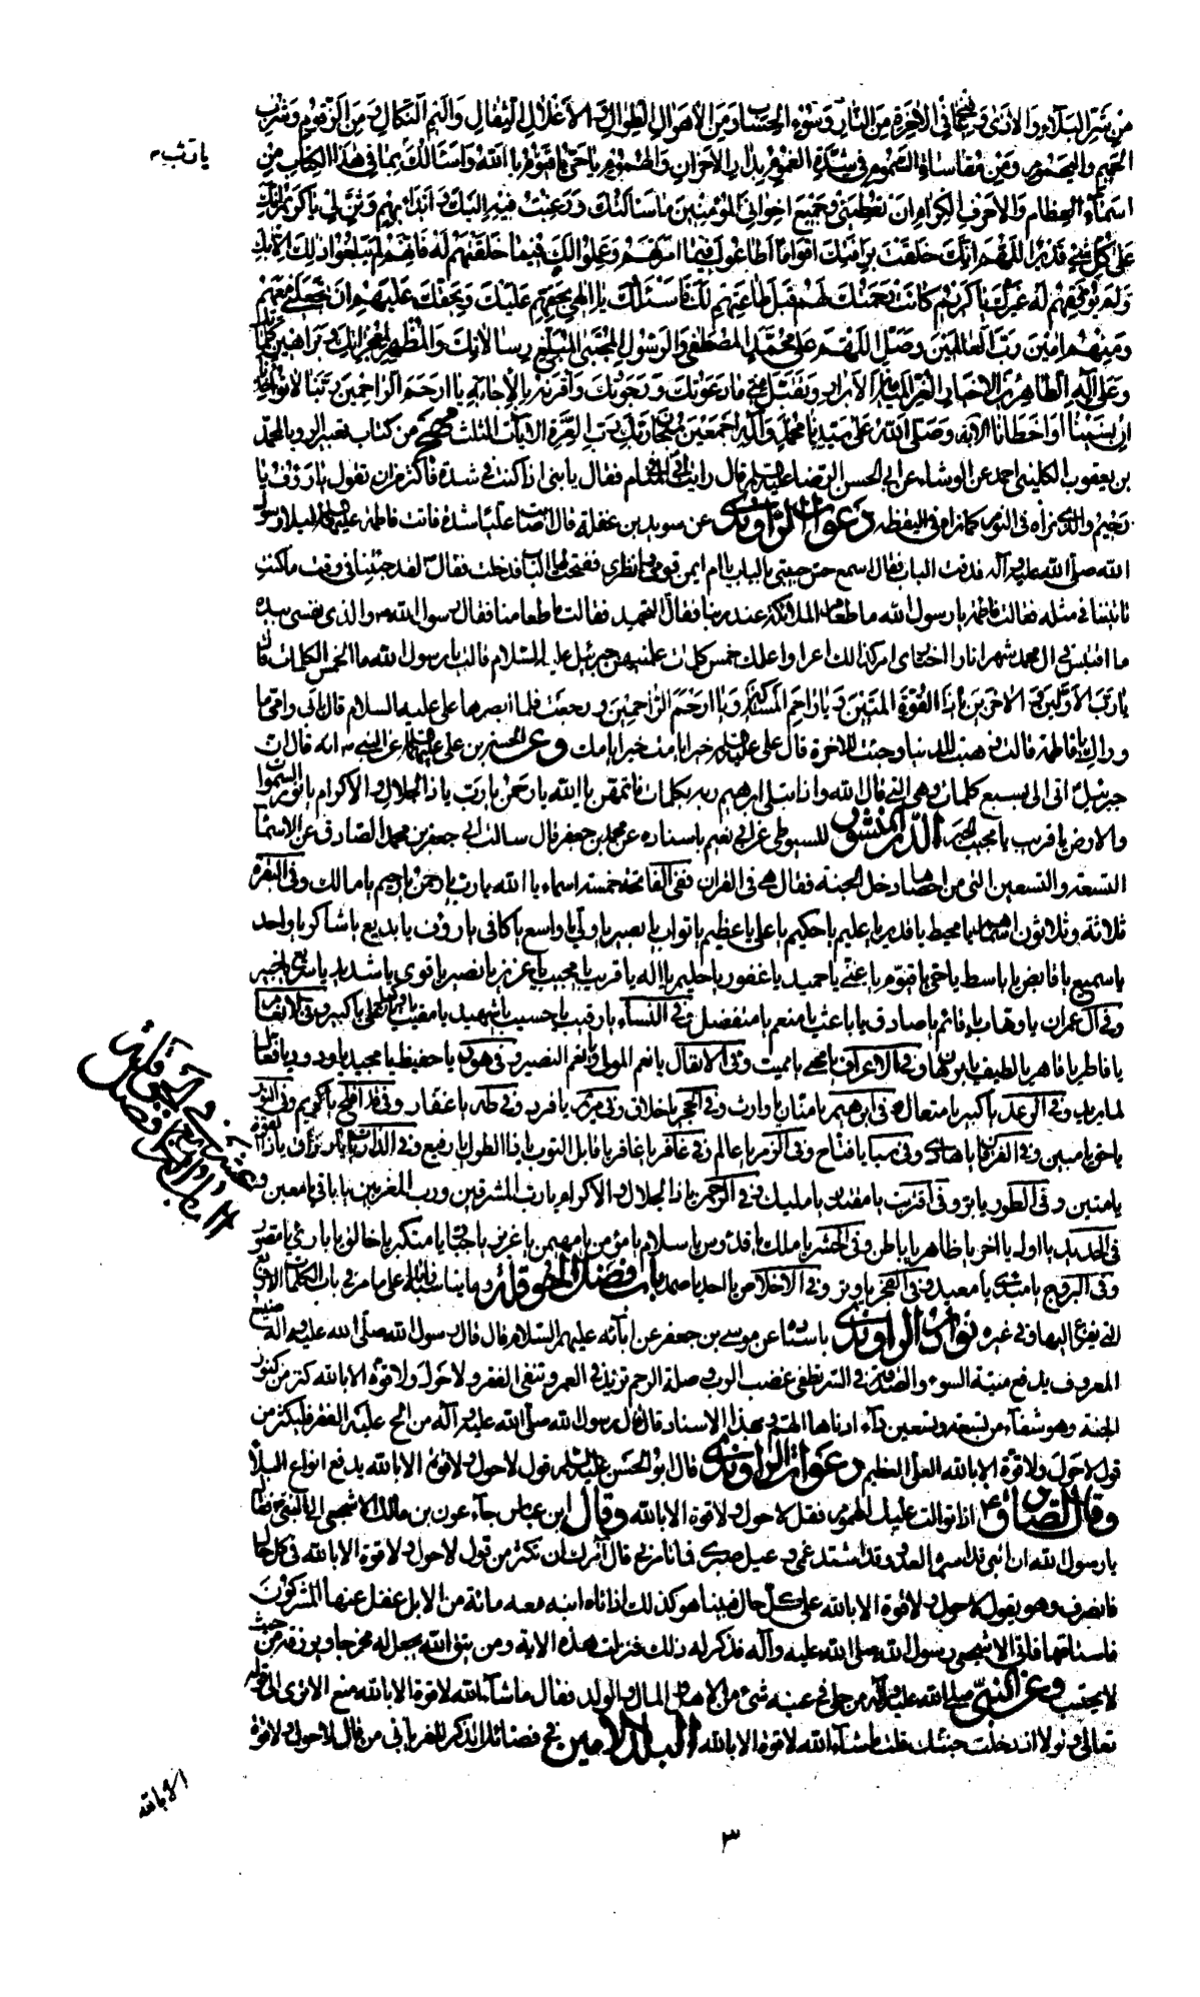 من شر البلاء والأذى وتنجينا في الآخرة من النار وسوء الحساب ومن الأهوال الطوال والأغلال الثقال وأليم النكال ومن الزقوم وشرب
الحميم واليحموم ومن مقاساة السموم في شدة الغموم بدار الأحزان والهموم يا حي يا قيوم يا الله وأسألك بما في هذا الكتاب من
أسمائك العظام والأحرف الكرام أن تعطيني وجميع إخواني المؤمنين ما سألتك ورغبت فيه إليك وابدأ بهم وثن لي يا كريم إنك
على كل شيء قدير اللهم إنك خلقت برأفتك أقواما أطاعوك فيما أمرتهم وعملوا لك فيما خلقتهم له فإنهم لم يبلغوا ذلك إلا بك
ولم يوفقهم له غيرك يا كريم كانت رحمتك لهم قبل طاعتهم لك فأسئلك يا إلهي بحقهم عليك وبحقك عليهم أن تجعلني معهم
ومنهم آمين رب العالمين وصل اللهم على محمد المصطفى والرسول المجتبى المبلغ رسالاتك والمظهر لمعجزاتك وبراهين
وعلى آله الطاهرين الأخيار الأبرار وتقبل مني ما دعوتك ورجوتك واقرنه بالإجابة يا أرحم الراحمين ربنا لا تؤاخذنا
إن نسينا أو أخطأنا الآية وصلى الله على سيدنا محمد وآله أجمعين سبحان ربك رب العزة الآيات الثلث مهج من كتاب تعبير الرؤيا لمحمد
بن يعقوب الكليني أحمد عن الوشاء عن أبي الحسن الرضا عليه السلام قال رأيت أبي في المنام فقال يا بني إذا كنت في شدة فأكثر من أن تقول يا رؤف يا
رحيم والذي تراه في النوم كما تراه في اليقظة دعوات الراوندي عن سويد بن غفلة قال أصابت عليا شدة فأتت فاطمة عليها السلام ليلا رسول
الله صلى الله عليه وآله فدقت الباب فقال أسمع حس حبيبتي بالباب يا أم أيمن قومي وانظري ففتحت لها الباب فدخلت فقال ص لقد جئتنا في وقت ما كنت
تأتينا في مثله فقالت فاطمة يا رسول الله ما طعام الملائكة عند ربنا فقال التحميد فقالت ما طعامنا فقال رسول الله ص والذي نفسي بيده
ما اقتبس في آل محمد شهرا نارا أعلمك خمس كلمات علمنيهن جبرئيل عليه السلام قالت يا رسول الله ما الخمس الكلمات قال
يا رب الأولين والآخرين يا ذا القوة المتين ويا راحم المساكين ويا أرحم الراحمين ورجعت فلما أبصرها علي عليه السلام قال بأبي وأمي ما
وراءك يا فاطمة قالت ذهبت للدنيا وجئت للآخرة قال علي عليه السلام خير أيامك خير أيامك وعن الحسين بن علي عليهما السلام عن النبي ص أنه قال إن
جبرئيل أتى إلي بسبع كلمات وهي التي قال الله وإذ ابتلى إبرهيم ربه بكلمات فأتمهن يا الله يا رحمن يا رب يا ذا الجلال والإكرام يا نور السموات
والأرض يا قريب يا مجيب الدر المنثور للسيوطي عن أبي نعيم بإسناده عن محمد بن جعفر قال سألت أبي جعفر بن محمد الصادق عن الأسماء
التسعة والتسعين التي من أحصاها دخل الجنة فقال هي في القرآن ففي الفاتحة خمسة أسماء يا الله يا رب يا رحمن يا رحيم يا مالك وفي البقرة
ثلاثة وثلاثون اسما يا محيط يا قدير يا عليم يا حكيم يا علي يا عظيم يا تواب يا بصير يا ولي يا واسع يا كافي يا رؤف يا بديع يا شاكر يا واحد
يا سميع يا قابض يا باسط يا حي يا قيوم يا غني يا حميد يا غفور يا حليم يا إله يا قريب يا مجيب يا عزيز يا نصير يا قوي يا شديد يا سريع يا خبير
وفي آل عمران يا وهاب يا قائم يا صادق يا باعث يا منعم يا متفضل وفي النساء يا رقيب يا حسيب يا شهيد يا مقيت يا علي يا كبير وفي الأنعام
يا فاطر يا قاهر يا لطيف يا برهان وفي الأعراف يا محيي يا مميت وفي الأنفال يا نعم المولى ويا نعم النصير وفي هود يا حفيظ يا مجيد يا ودود يا فعال
لما يريد وفي الرعد يا كبير يا متعال وفي إبرهيم يا منان يا وارث وفي الحجر يا خلاق وفي مريم يا فرد وفي طه يا غفار وفي قد أفلح يا كريم وفي النور
يا حق يا مبين وفي الفرقان يا هادي وفي سبا يا فتاح وفي الزمر يا عالم وفي غافر يا غافر يا قابل التوب يا ذا الطول يا رفيع وفي الذاريات يا رزاق يا ذا القوة
يا متين وفي الطور يا بر وفي اقتربت يا مقتدر يا مليك وفي الرحمن يا ذا الجلال والإكرام يا رب المشرقين ورب المغربين يا باقي يا معين و
في الحديد يا أول يا آخر يا ظاهر يا باطن وفي الحشر يا ملك يا قدوس يا سلام يا مؤمن يا مهيمن يا عزيز يا جبار يا متكبر يا خالق يا بارئ يا مصور
وفي البروج يا مبدئ يا معيد وفي الفجر يا وتر وفي الإخلاص يا أحد يا صمد باب فضل الحوقلة وما يناسبه على ما مر في باب الكلمات الأربع
التي يفزع إليها وفي غيره نوادر الراوندي بإسناده عن موسى بن جعفر عن آبائه عليهم السلام قال قال رسول الله صلى الله عليه وآله صنيع
المعروف يدفع ميتة السوء والصدقة في السر تطفئ غضب الرب وصلة الرحم تزيد في العمر وتنفي الفقر ولا حول ولا قوة إلا بالله كنز من كنوز
الجنة وهو شفاء من تسعة وتسعين داء أدناها الهم وبهذا الإسناد قال قال رسول الله صلى الله عليه وآله من ألح عليه الفقر فليكثر من
قول لا حول ولا قوة إلا بالله العلي العظيم دعوات الراوندي قال أبو الحسن عليه السلام قول لا حول ولا قوة إلا بالله يدفع أنواع البلاء
وقال الصادق ع إذا توالت عليك الهموم فقل لا حول ولا قوة إلا بالله وقال ابن عباس جاء عون بن مالك الأشجعي إلى النبي ص فقال
يا رسول الله إن ابني قد أسره العدو وقد اشتد غمي وعيل صبري فما تأمرني قال آمرك أن تكثر من قول لا حول ولا قوة إلا بالله في كل حال
فانصرف وهو يقول لا حول ولا قوة إلا بالله على كل حال فبينا هو كذلك إذ أتاه ابنه معه مائة من الإبل غفل عنها المشركون
فاستاقها فأتى الأشجعي رسول الله صلى الله عليه وآله فذكر له ذلك فنزلت هذه الآية ومن يتق الله يجعل له مخرجا ويرزقه من حيث
لا يحتسب وعن النبي صلى الله عليه وآله من حلي في عينه شيء من الأهل والمال والولد فقال ما شاء الله لا قوة إلا بالله منع ألا ترى إلى قوله
تعالى ولولا إذ دخلت جنتك قلت ما شاء الله لا قوة إلا بالله البلد الأمين في فضائل الذكر للفريابي من قال لا حول ولا قوة
إلا بالله
٣